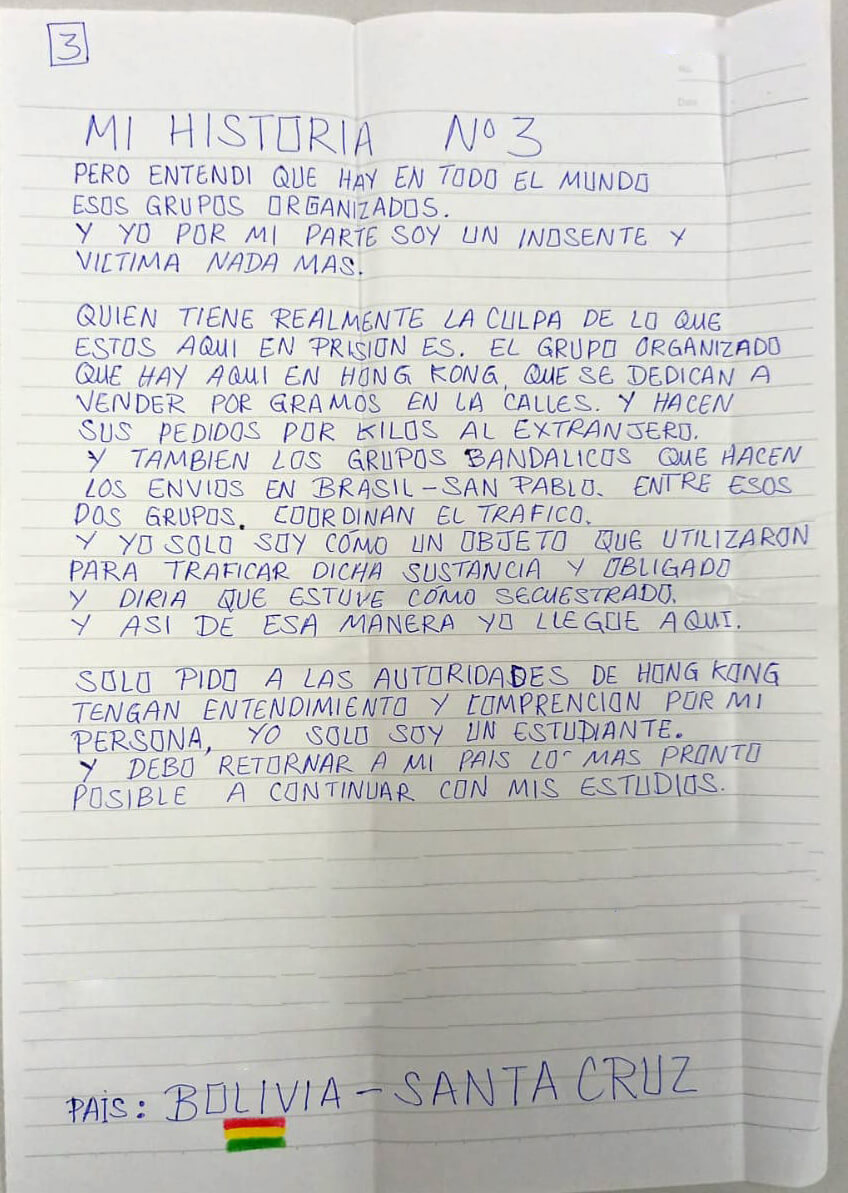 3
No.
Date
MI HISTORIA Nº 3
PERO ENTENDI QUE HAY EN TODO EL MUNDO
ESOS GRUPOS ORGANIZADOS.
Y YO POR MI PARTE SOY UN INOSENTE Y
VICTIMA NADA MAS.
QUIEN TIENE REALMENTE LA CULPA DE LO QUE
ESTOS AQUI EN PRISION ES. EL GRUPO ORGANIZADO
QUE HAY AQUI EN HONG KONG, QUE SE DEDICAN A
VENDER POR GRAMOS EN LA CALLES. Y HACEN
SUS PEDIDOS POR KILOS AL EXTRANJERO.
Y TAMBIEN LOS GRUPOS BANDALICOS QUE HACEN
LOS ENVIOS EN BRASIL-SAN PABLO. ENTRE ESOS
DOS GRUPOS. COORDINAN EL TRAFICO.
Y YO SOLO SOY CÓMO UN OBJETO QUE UTILIZARON
PARA TRAFICAR DICHA SUSTANCIA Y OBLIGADO
Y DIRIA QUE ESTUVE CÓMO SECUESTRADO.
Y ASI DE ESA MANERA YO LLEGUE AQUI.
SOLO PIDO A LAS AUTORIDADES DE HONG KONG
TENGAN ENTENDIMIENTO Y COMPRENCION POR MI
PERSONA, YO SOLO SOY UN ESTUDIANTE.
Y DEBO RETORNAR A MI PAIS LO MAS PRONTO
POSIBLE A CONTINUAR CON MIS ESTUDIOS.
PAÍS: BOLIVIA - SANTA CRUZ